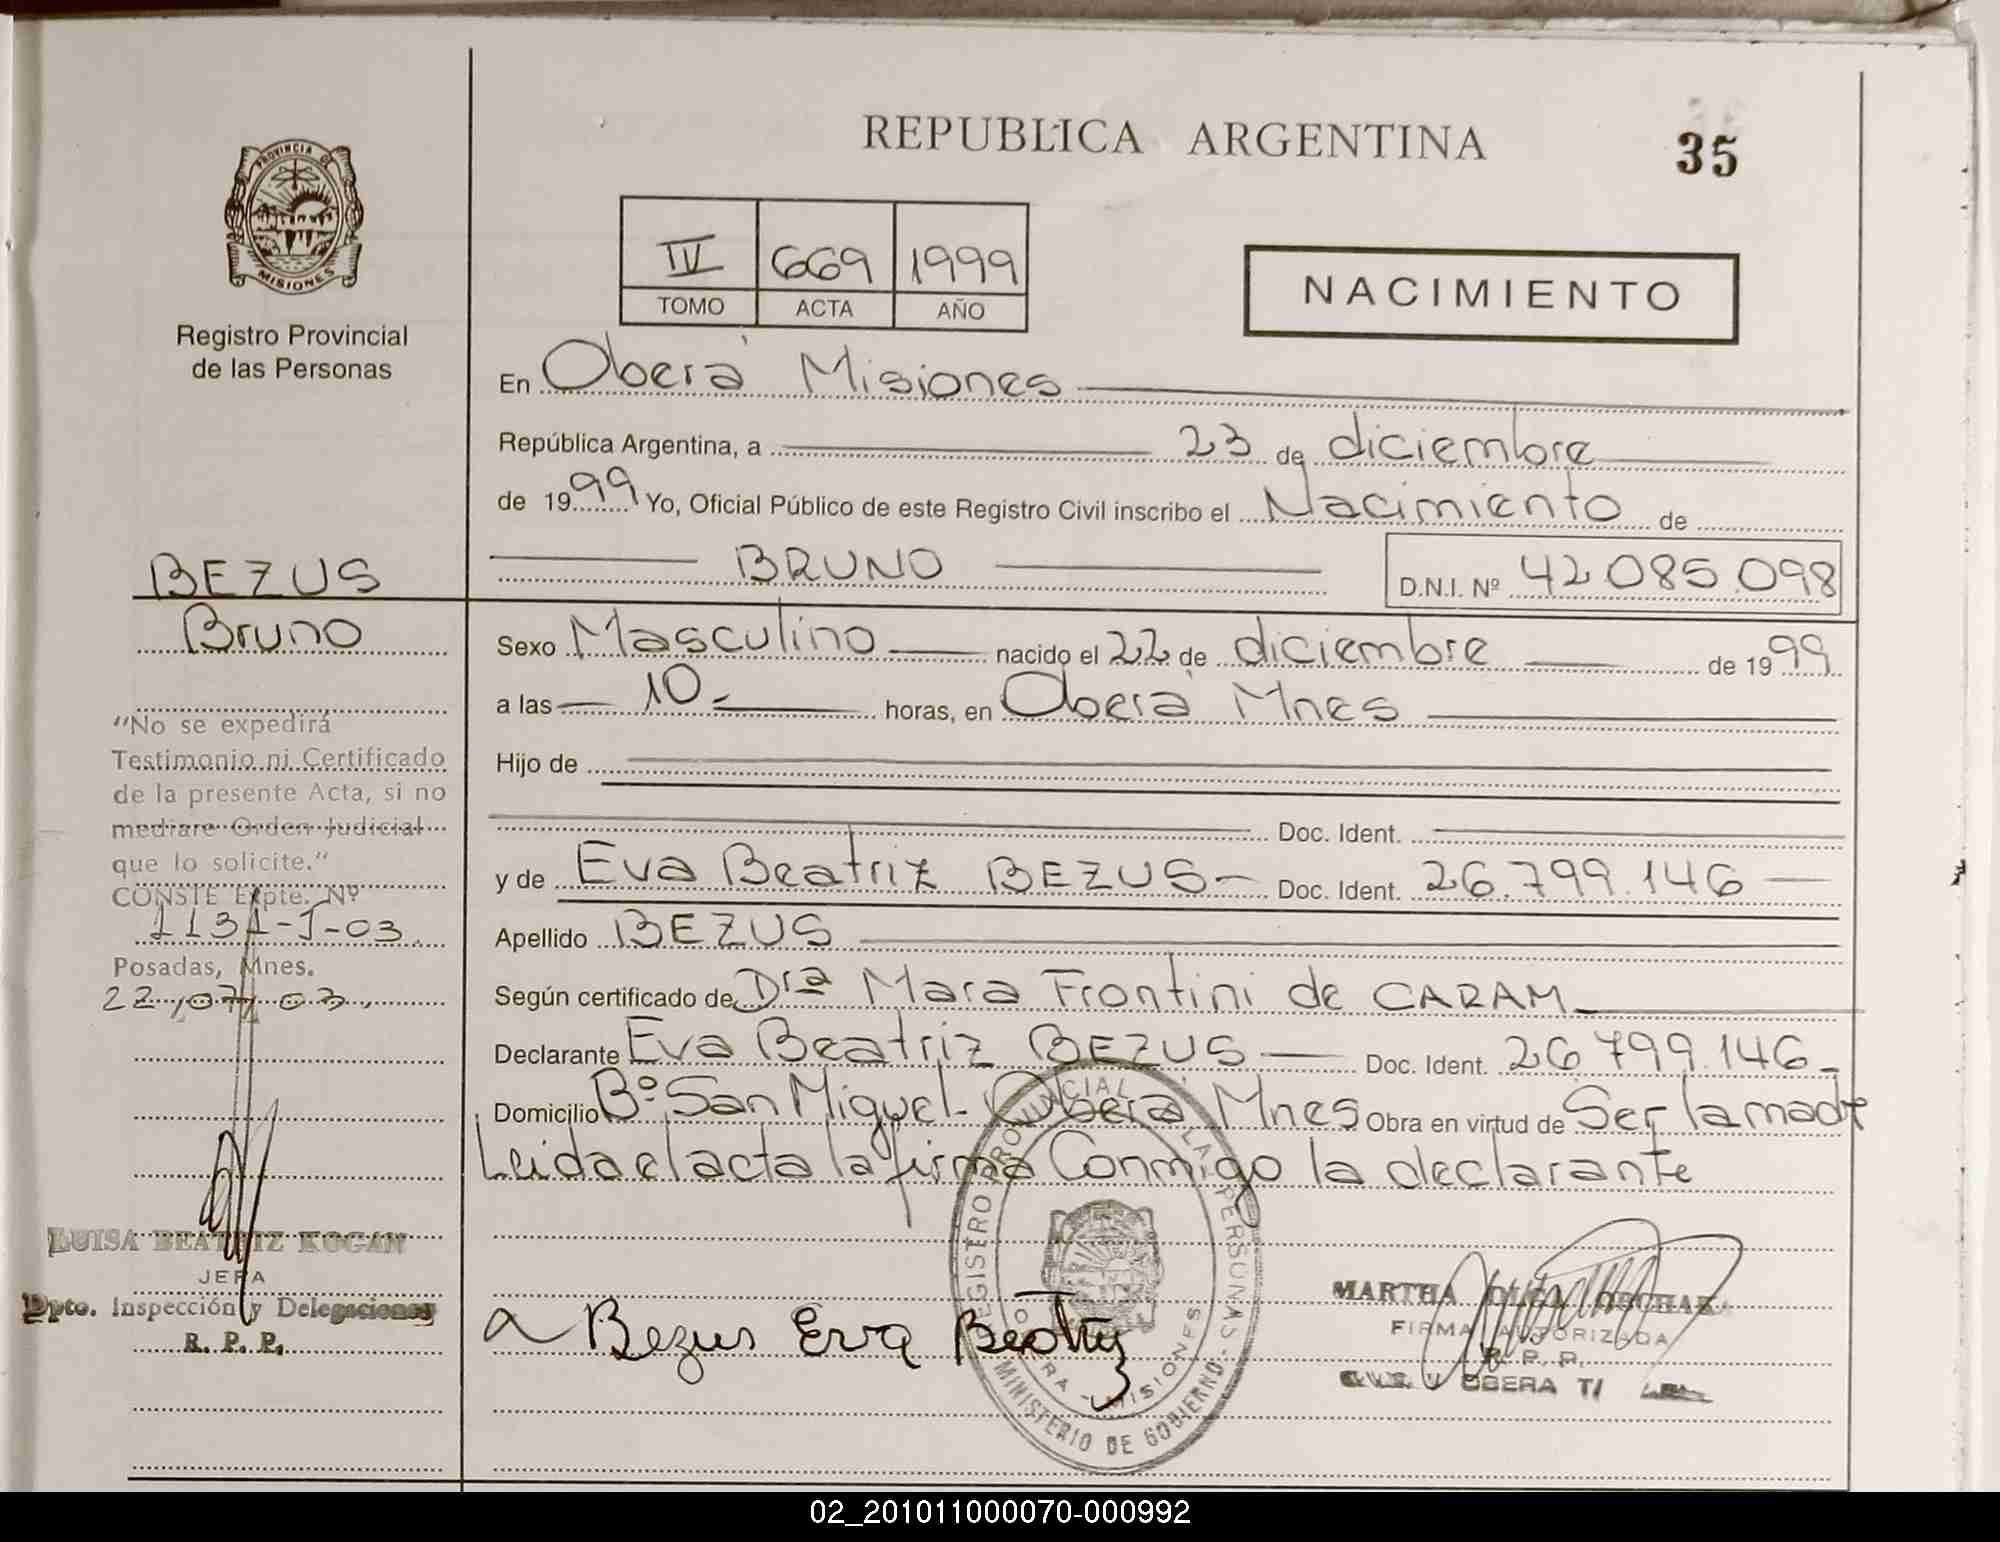 REPUBLICA ARGENTINA
35
PROVINCIA DE
MISIONES
Registro Provincial
de las Personas
IV 669 1999
TOMO ACTA AÑO
NACIMIENTO
En Oberá Misiones
República Argentina, a 23 de diciembre
de 1999 Yo, Oficial Público de este Registro Civil inscribo el Nacimiento de
BRUNO D.N.I. Nº 42.085.098
BEZUS
Bruno
"No se expedirá
Testimonio ni Certificado
de la presente Acta, si no
mediare Orden Judicial
que lo solicite."
CONSTE Expte. Nº
1131-J-03
Posadas, Mnes.
22,07,03.
LUISA BEATRIZ KOGAN
JEFA
Dpto. Inspección y Delegaciones
R. P. P.
Sexo Masculino nacido el 22 de diciembre de 1999
a las 10 horas, en Oberá Mnes
Hijo de
Doc. Ident.
y de Eva Beatriz BEZUS Doc. Ident. 26.799.146
Apellido BEZUS
Según certificado de Dra Mara Frontini de CARAM
Declarante Eva Beatriz BEZUS Doc. Ident. 26.799.146
Domicilio Bº San Miguel - Oberá Mnes Obra en virtud de Ser la madre
Leida el acta la firma Conmigo la declarante
Bezus Eva Beatriz
REGISTRO PROVINCIAL LAS PERSONAS - MINISTERIO DE GOBIERNO
MISIONES
MARTHA
FIRMA AUTORIZADA
R. P. P.
OBERA
02_201011000070-000992